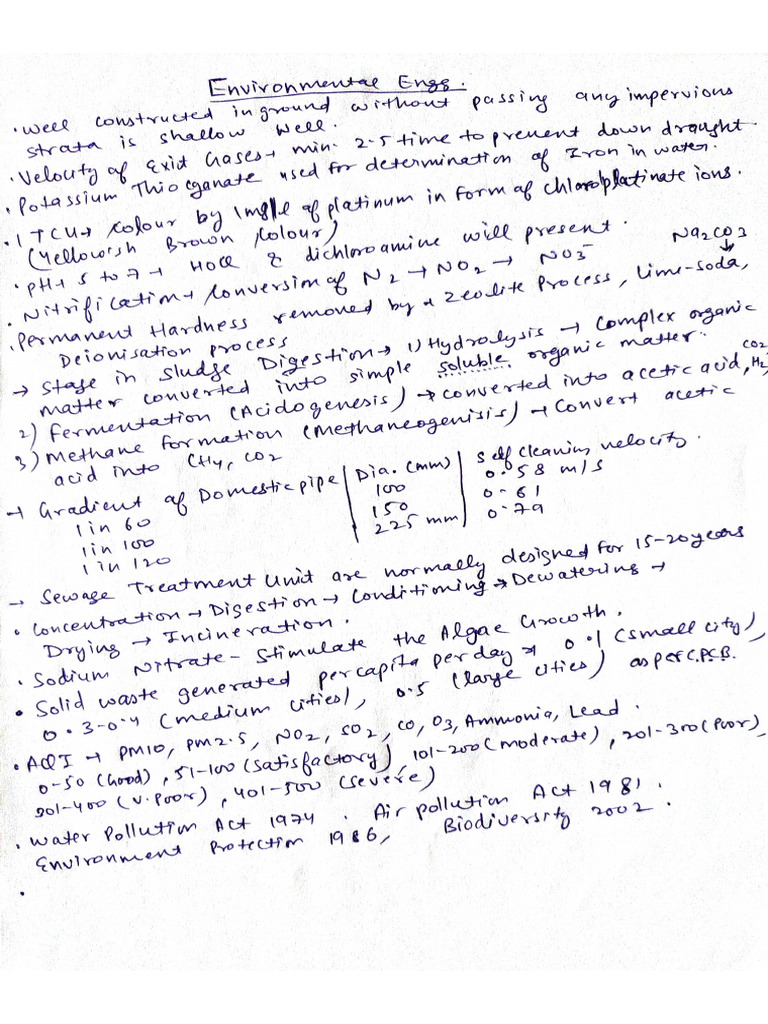 Environmental Engg.
• Well constructed in ground without passing any impervious
strata is shallow well.
• Velocity of Exit Gases → min. 2.5 time to prevent down draught.
• Potassium Thiocyanate used for determination of Iron in water.
• 1 TCU → Colour by 1mg/l of platinum in form of chloroplatinate ions.
(Yellowish Brown Colour)
• pH → 5 to 7 → HOCl & dichloroamine will present.
• Nitrification → Conversion of N2 → NO2 → NO3⁻
Na2CO3
↓
• Permanent Hardness removed by → Zeolite Process, Lime-Soda,
Deionisation process
→ Stage in Sludge Digestion → 1) Hydrolysis → Complex organic
matter converted into simple soluble organic matter.
2) Fermentation (Acidogenesis) → converted into acetic acid, H2, CO2
3) Methane formation (Methaneogenisis) → Convert acetic
acid into CH4, CO2
→ Gradient of Domestic pipe | Dia. (mm) | Self cleaning velocity.
1 in 60 | 100 | 0.58 m/s
1 in 100 | 150 | 0.61
1 in 120 | 225 mm | 0.79
→ Sewage Treatment Unit are normally designed for 15-20 years
• Concentration → Digestion → Conditioning → Dewatering →
Drying → Incineration.
• Sodium Nitrate - Stimulate the Algae Growth.
• Solid waste generated per capita per day → 0.1 (small city),
0.3-0.4 (medium cities), 0.5 (large cities) as per C.P.C.B.
• AQI → PM10, PM2.5, NO2, SO2, CO, O3, Ammonia, Lead.
0-50 (Good), 51-100 (Satisfactory), 101-200 (moderate), 201-300 (Poor),
301-400 (V. Poor), 401-500 (Severe)
• Water Pollution Act 1974. Air pollution Act 1981.
Environment Protection 1986, Biodiversity 2002.
•